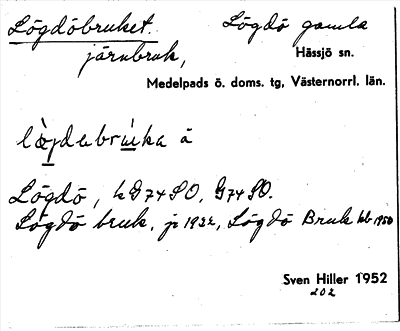 Lögdöbruket. Lögdö gamla
järnbruk, Hässjö sn.
Medelpads ö. doms. tg, Västernorrl. län.
å
Lögdö, kD74SO, G74SO.
Lögdö bruk, jr 1932, Lögdö Bruk kb 1950
Sven Hiller 1952
202